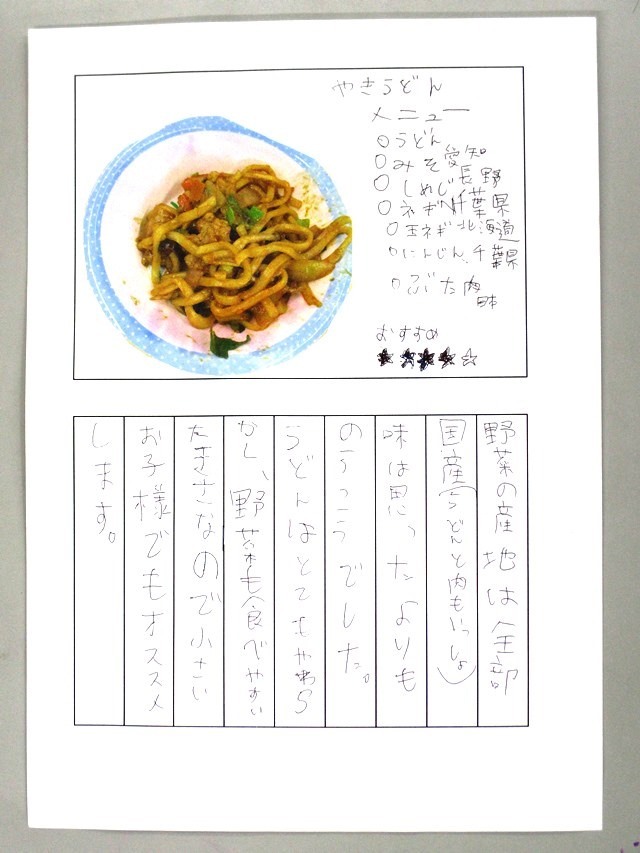 やきうどん
メニュー
○うどん
○みそ愛知
○しめじ長野
○ネギ千葉県
○玉ネギ北海道
○にんじん、千葉県
○ぶた肉
日本
おすすめ
★★★★☆
野菜の産地は全部
国産(うどんと肉もいっしょ)
味は思ったよりも
のうこうでした。
うどんはとてもやわら
かく、野菜も食べやすい
大きさなので小さい
お子様でもオススメ
します。